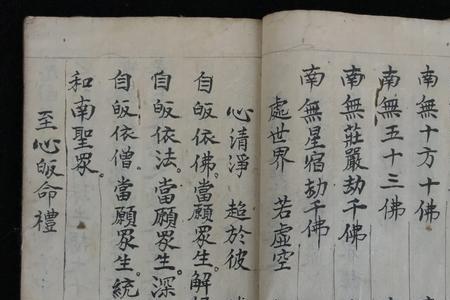 南無十方十佛
南無五十三佛
南無莊嚴劫千佛
南無星宿劫千佛
處世界 若虛空
心清淨 超於彼
自皈依佛。當願眾生。解
自皈依法。當願眾生。深
自皈依僧。當願眾生。統
和南聖眾。
至心皈命禮